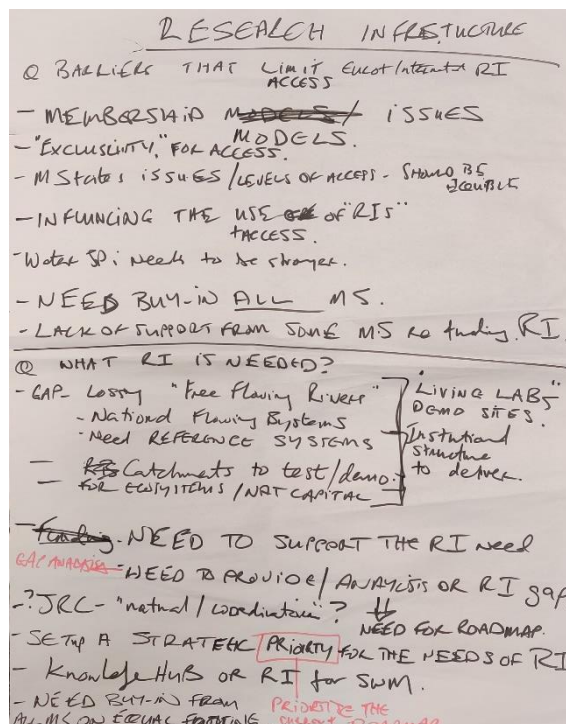 RESEARCH INFRASTUCTURE
Q BARRIERS THAT LIMIT RI
ACCESS
- MEMBERSHIP ISSUES
MODELS.
- "EXCLUSIVITY," FOR ACCESS.
- M States ISSUES / LEVELS OF ACCESS - SHOULD BE
- INFLUNCING THE USE OF "RIs"
+ACCESS.
- Water JPi needs to be stronger.
- NEED BUY-IN ALL MS.
- LACK OF SUPPORT FROM SOME MS re funding RI
Q WHAT RI IS NEEDED?
- GAP- "Free Flowing Rivers"
- National Flowing Systems
- Need REFERENCE SYSTEMS
- Catchments to test/demo.
- FOR ECOSYSTEMS / NAT CAPITAL
"LIVING LABS"
DEMO SITES.
structure
to deliver.
- NEED TO SUPPORT THE RI need
GAP ANALYSIS - NEED TO PROVIDE / ANALYSIS OR RI gap
-? JRC - ?
NEED FOR ROADMAP.
- SETUP A STRATEGIC PRIORITY FOR THE NEEDS OF RI
- Knowledge HUB OR RI for SWM.
- NEED BUY-IN FROM
PRIORITIZE THE
ALL MS ON EQUAL FOOTING